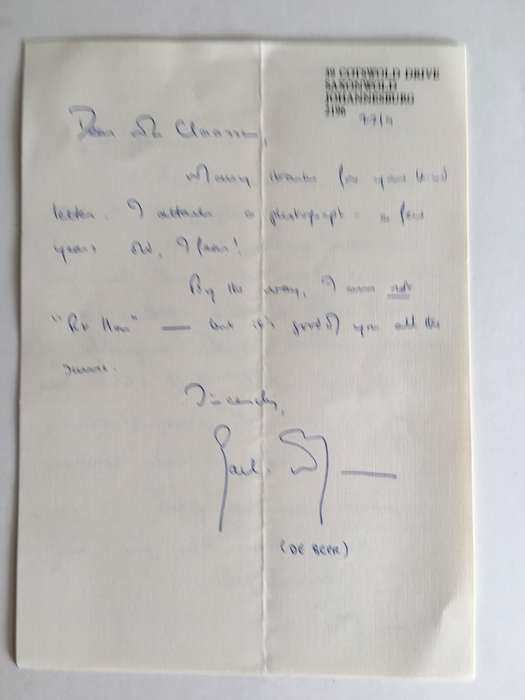 38 COTSWOLD DRIVE
SAXONWOLD
JOHANNESBURG
2196
Dear Mr Claassen,
Many thanks for your kind
letter. I attach a photograph – a few
years old, I fear!
By the way, I am not
"Rt Hon" — but it's good of you all the
same.
Sincerely,
(DE BEER)